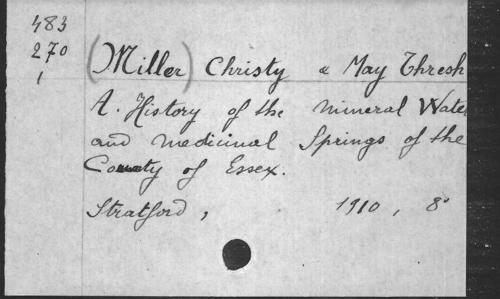 483
270
1
(Miller) Christy & May Thresh
A. History of the mineral Wate
and medicinal Springs of the
County of Essex.
Stratford, 1910, 8°